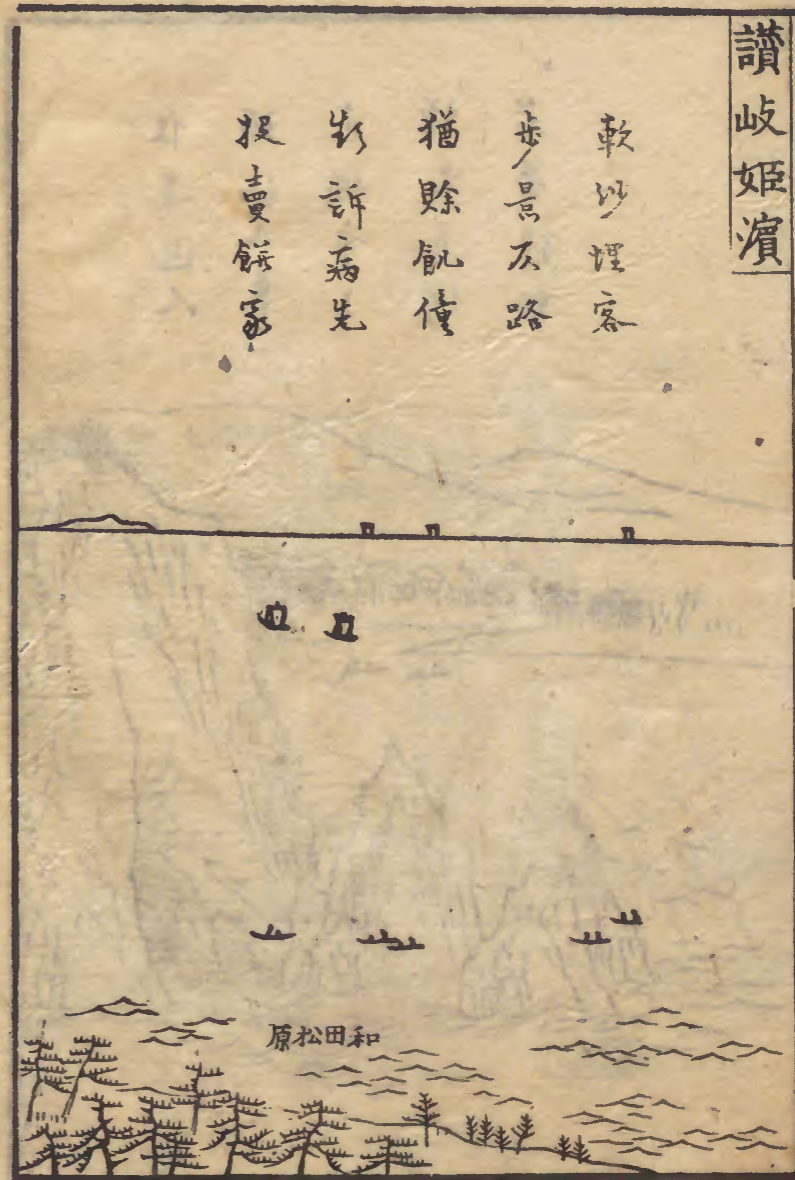 讚岐姫濱
軟沙埋客
歩景仄路
猶賖飢僮
頻訴病先
投賣餅家
和田松原